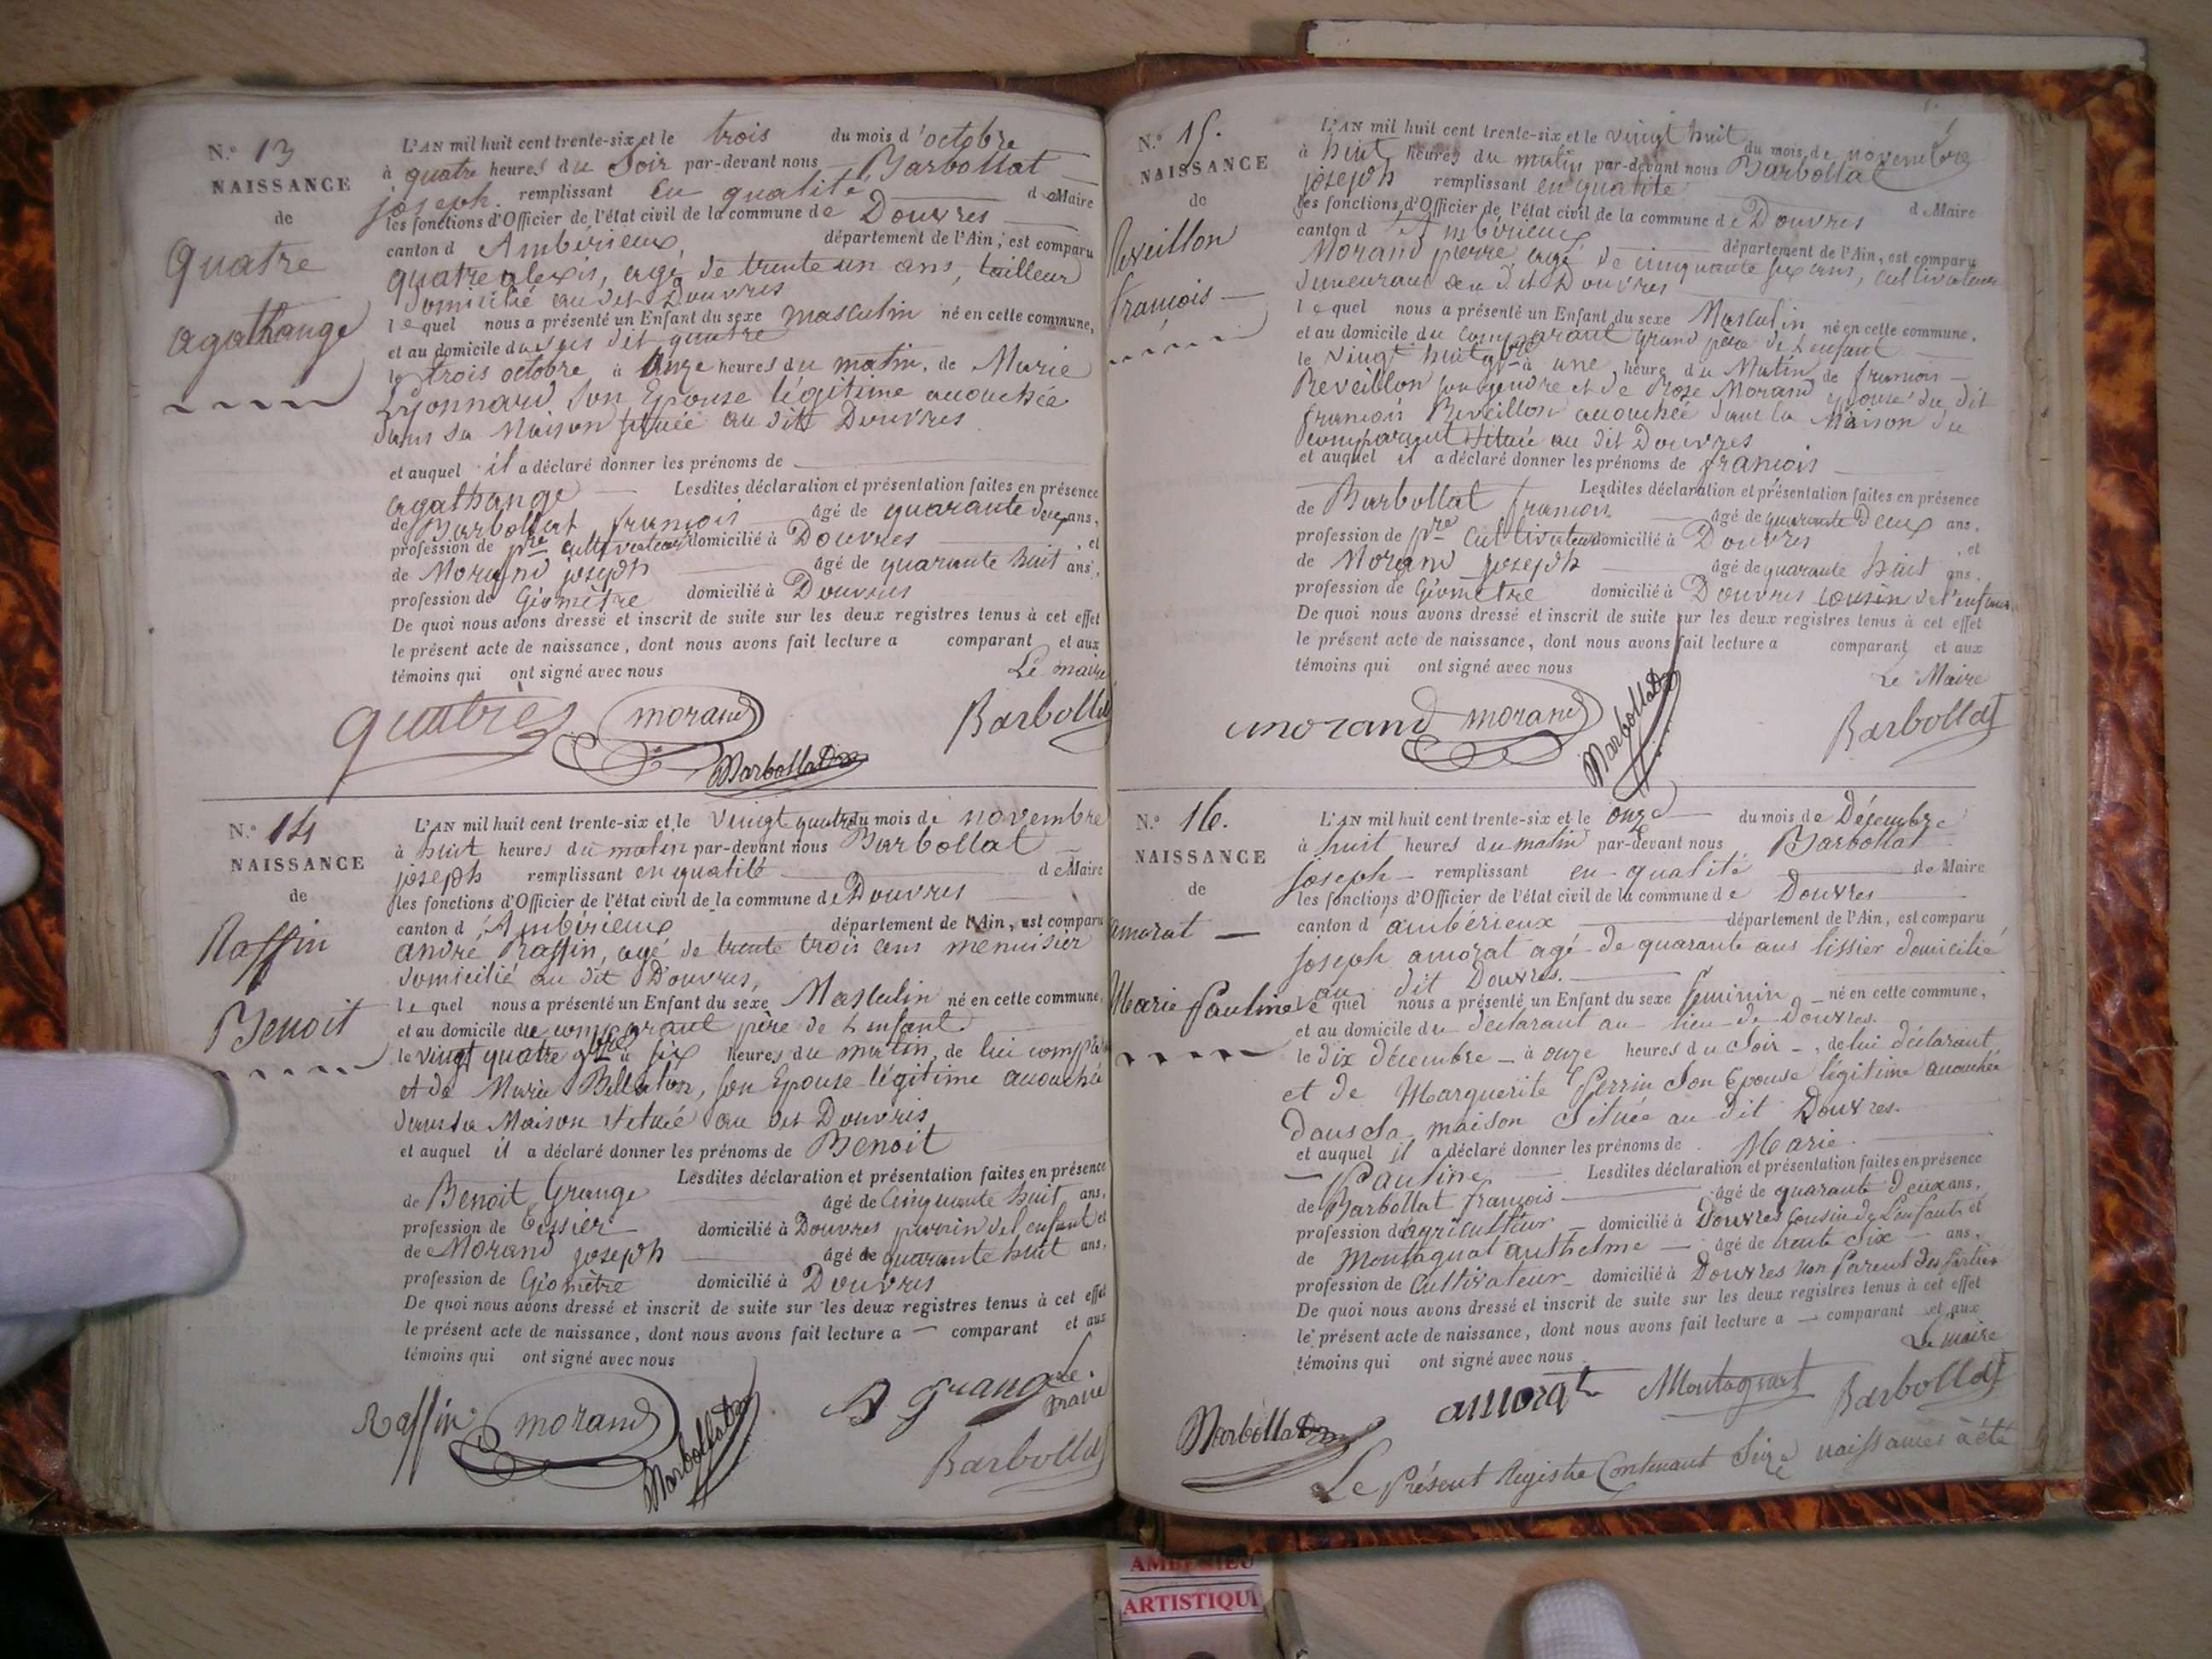 N.º 13
NAISSANCE
de
Quatre
agathange
L'AN mil huit cent trente-six et le trois du mois d'octobre
à quatre heures du Soir par-devant nous Barbollat
joseph. remplissant en qualité de Maire
les fonctions d'Officier de l'état civil de la commune de Douvres
canton d'Ambérieux, département de l'Ain, est comparu
quatre alexis, agé de trente un ans, tailleur
domicilié au dit Douvres
lequel nous a présenté un Enfant du sexe masculin né en cette commune,
et au domicile du sus dit quatre
le trois octobre à Onze heures du matin, de Marie
Lyonnard son Epouse légitime accouchée
dans sa Maison située au dit Douvres
et auquel il a déclaré donner les prénoms de
agathange Lesdites déclaration et présentation faites en présence
de Barbollat françois âgé de quarante deux ans,
profession de pre cultivateur domicilié à Douvres, et
de Morand joseph âgé de quarante huit ans,
profession de Géomètre domicilié à Douvres
De quoi nous avons dressé et inscrit de suite sur les deux registres tenus à cet effet
le présent acte de naissance, dont nous avons fait lecture a comparant et aux
témoins qui ont signé avec nous Le maire
quatres morand Barbollat
Barbollat
N.º 14
NAISSANCE
de
Raffin
Benoit
L'AN mil huit cent trente-six et le vingt quatre du mois de novembre
à huit heures du matin par-devant nous Barbollat
joseph remplissant en qualité de Maire
les fonctions d'Officier de l'état civil de la commune de Douvres
canton d'Ambérieux département de l'Ain, est comparu
andré Raffin, agé de trente trois ans menuisier
domicilié au dit Douvres,
lequel nous a présenté un Enfant du sexe Masculin né en cette commune,
et au domicile du comparant père de L'enfant
le vingt quatre 9bre à six heures du matin, de lui
et de Marie son Epouse légitime accouchée
dans sa Maison située au dit Douvres
et auquel il a déclaré donner les prénoms de Benoit
Lesdites déclaration et présentation faites en présence
de Benoit Grange âgé de Cinquante huit ans,
profession de tissier domicilié à Douvres parrain de l'enfant et
de Morand joseph âgé de quarante huit ans,
profession de Géomètre domicilié à Douvres
De quoi nous avons dressé et inscrit de suite sur les deux registres tenus à cet effet
le présent acte de naissance, dont nous avons fait lecture a comparant et aux
témoins qui ont signé avec nous
Le maire
Raffin morand Barbollat B grange
Barbollat
N.º 15.
NAISSANCE
de
Reveillon
françois
L'AN mil huit cent trente-six et le vingt huit du mois de novembre
à huit heures du matin par-devant nous Barbollat
joseph remplissant en qualité de Maire
les fonctions d'Officier de l'état civil de la commune de Douvres
canton d'Ambérieux département de l'Ain, est comparu
Morand pierre agé de cinquante six ans, cultivateur
demeurant au dit Douvres
lequel nous a présenté un Enfant du sexe Masculin né en cette commune,
et au domicile du comparant grand père de L'enfant
le vingt huit 9bre à une heure du Matin de françois
Reveillon son gendre et de Rose Morand epouse du dit
françois Reveillon accouchée dans la Maison du
comparant située au dit Douvres
et auquel il a déclaré donner les prénoms de françois
Lesdites déclaration et présentation faites en présence
de Barbollat françois âgé de quarante Deux ans,
profession de pre Cultivateur domicilié à Douvres, et
de Morand joseph âgé de quarante huit ans,
profession de Géomètre domicilié à Douvres cousin de l'enfant
De quoi nous avons dressé et inscrit de suite sur les deux registres tenus à cet effet
le présent acte de naissance, dont nous avons fait lecture a comparant et aux
témoins qui ont signé avec nous Le Maire
morand morand Barbollat Barbollat
N.º 16.
NAISSANCE
de
amorat
Marie Pauline
L'AN mil huit cent trente-six et le onze du mois de Décembre
à huit heures du matin par-devant nous Barbollat
joseph remplissant en qualité de Maire
les fonctions d'Officier de l'état civil de la commune de Douvres
canton d'ambérieux département de l'Ain, est comparu
joseph amorat agé de quarante ans tissier domicilié
au dit Douvres.
lequel nous a présenté un Enfant du sexe feminin né en cette commune,
et au domicile du déclarant au lieu de Douvres.
le dix décembre à onze heures du Soir, de lui déclarant
et de Marguerite Perrin Son Epouse légitime accouchée
dans Sa maison Située au dit Douvres.
et auquel il a déclaré donner les prénoms de Marie
Pauline Lesdites déclaration et présentation faites en présence
de Barbollat françois âgé de quarante deux ans,
profession de agriculteur domicilié à Douvres Cousin de L'enfant et
de Montagnat anthelme âgé de trente Six ans,
profession de Cultivateur domicilié à Douvres Non Parent des Parties
De quoi nous avons dressé et inscrit de suite sur les deux registres tenus à cet effet
le présent acte de naissance, dont nous avons fait lecture a comparant et aux
témoins qui ont signé avec nous. Le maire
Barbollat amorat Montagnat Barbollat
Le Présent Registre Contenant Seize naissances à été
AMBERIEU
ARTISTIQU